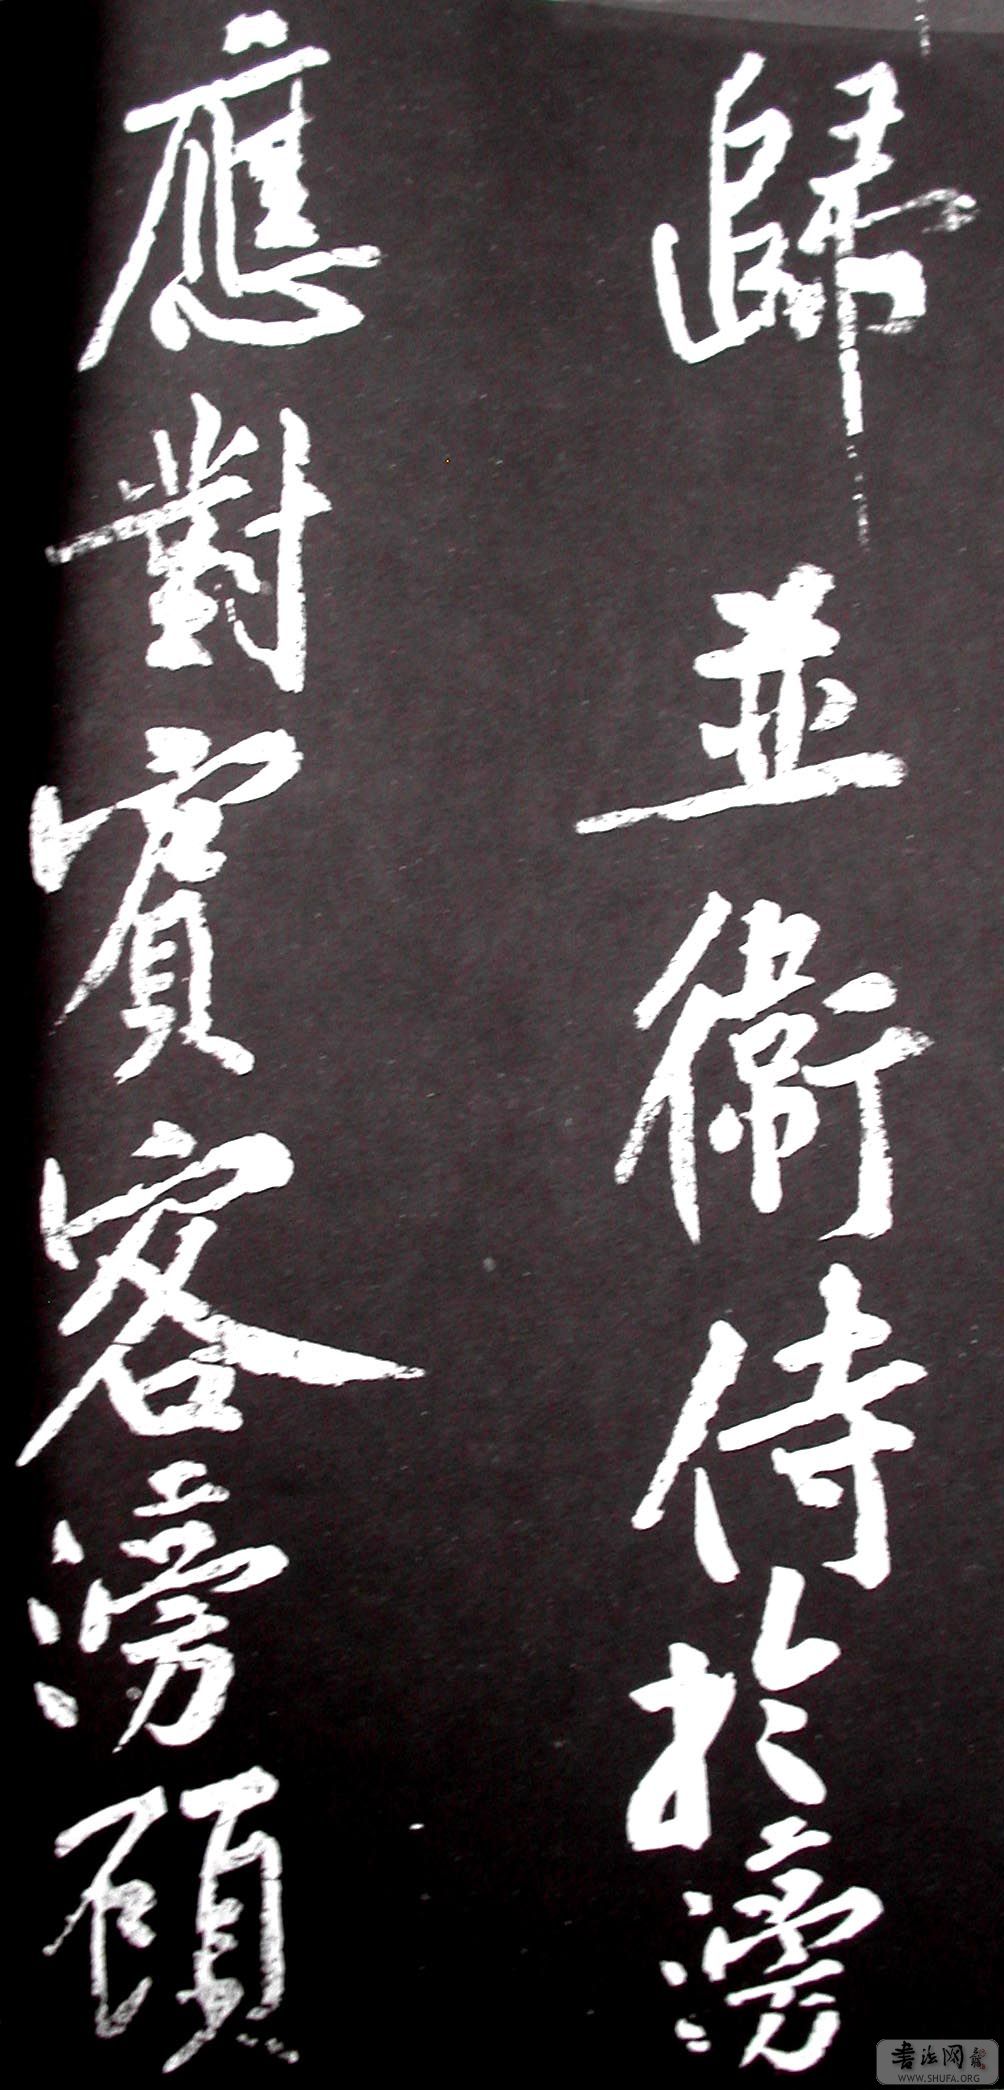 歸並衞侍於滂
應對賓客滂顧
書法网
WWW.SHUFA.ORG